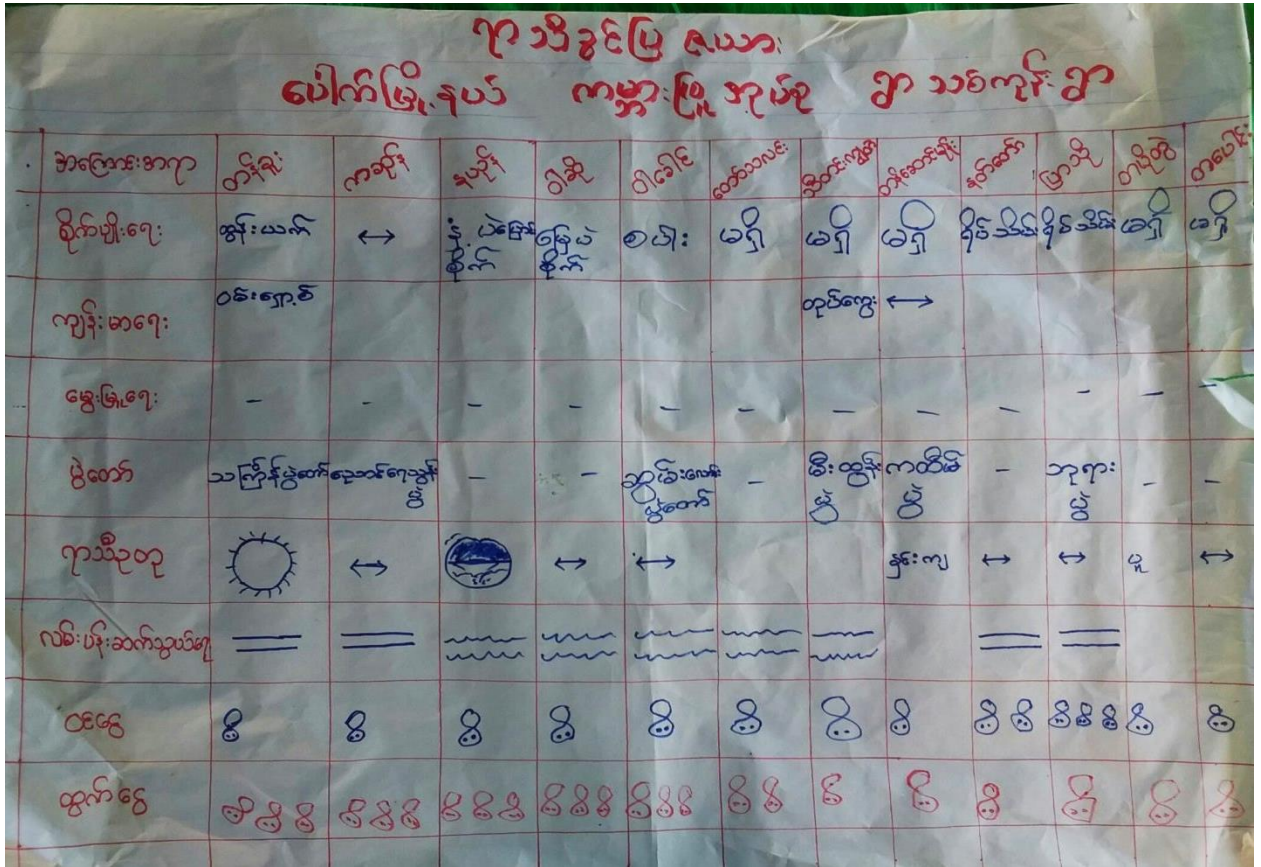 ရာသီခွင်ပြ ဇယား
ပေါက်မြို့နယ် ကမ္ဘားဖြူ အုပ်စု ရွာသစ်ကုန်း ရွာ
အကြောင်းအရာ တန်ခူး ကဆုန် နယုန် ဝါဆို ဝါခေါင် တော်သလင်း သီတင်းကျွတ် တန်ဆောင်မုန်း နတ်တော် ပြာသို တပို့တွဲ တပေါင်း
စိုက်ပျိုးရေး ထွန်းယက် ↔ နှံ့ ပဲမြေ စိုက် မြေပဲ စိုက် စပါး မရှိ မရှိ မရှိ ရိပ်သိမ်း ရိပ်သိမ်း မရှိ မရှိ
ကျန်းမာရေး ဝမ်းလျှော တုပ်ကွေး ↔
မွေးမြူရေး - - - - - - - - - - - -
ပွဲတော် သင်္ကြန်ပွဲတော် ညောင်ရေသွန်းပွဲ - - ဆွမ်းလောင်းပွဲတော် - မီးထွန်းပွဲ ကထိန်ပွဲ - ဘုရားပွဲ - -
ရာသီဥတု ↔ ↔ ↔ နှင်းကျ ↔ ↔ ပူ ↔
လမ်းပန်းဆက်သွယ်ရေး
ဝင်ငွေ
ထွက်ငွေ